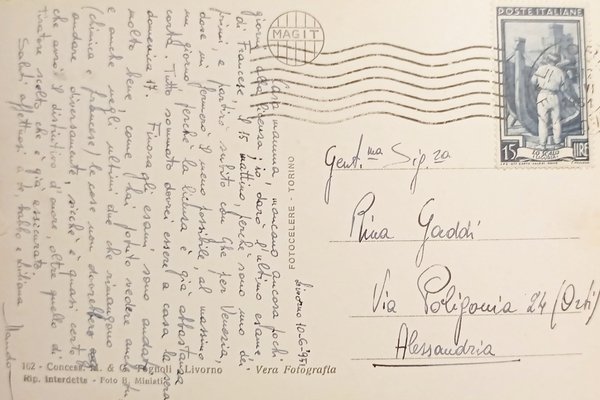 Livorno 10-6-951
Cara mamma, mancano ancora pochi
giorni alla licenza; io darò l'ultimo esame,
di Francese, il 15 mattino, perché sono uno dei
primi, e partirò subito con Ghe per Venezia,
dove mi fermerò il meno possibile, al massimo
un giorno perché la licenza è già abbastanza
corta. Tutto sommato dovrei essere a casa la sera
domenica 17. Finora gli esami sono andati
molto bene come hai potuto vedere anche tu
e anche negli ultimi due che rimangono
(chimica e francese) le cose non dovrebbero
andare diversamente, sicché è quasi certo
che avrò il distintivo d'onore, oltre quello di
tiratore scelto che è già assicurato.
Saluti affettuosi a te babbo e Liliana
Nando
MAGIT
POSTE ITALIANE
15 LIRE
LO SCALO
Gent.ma Sig.ra
Rina Gaddi
Via Poligonia 24 (Orti)
Alessandria
FOTOCELERE - TORINO
162 - Concess. Fagnoli - Livorno Vera Fotografia
Rip. interdetta - Foto B. Miniati